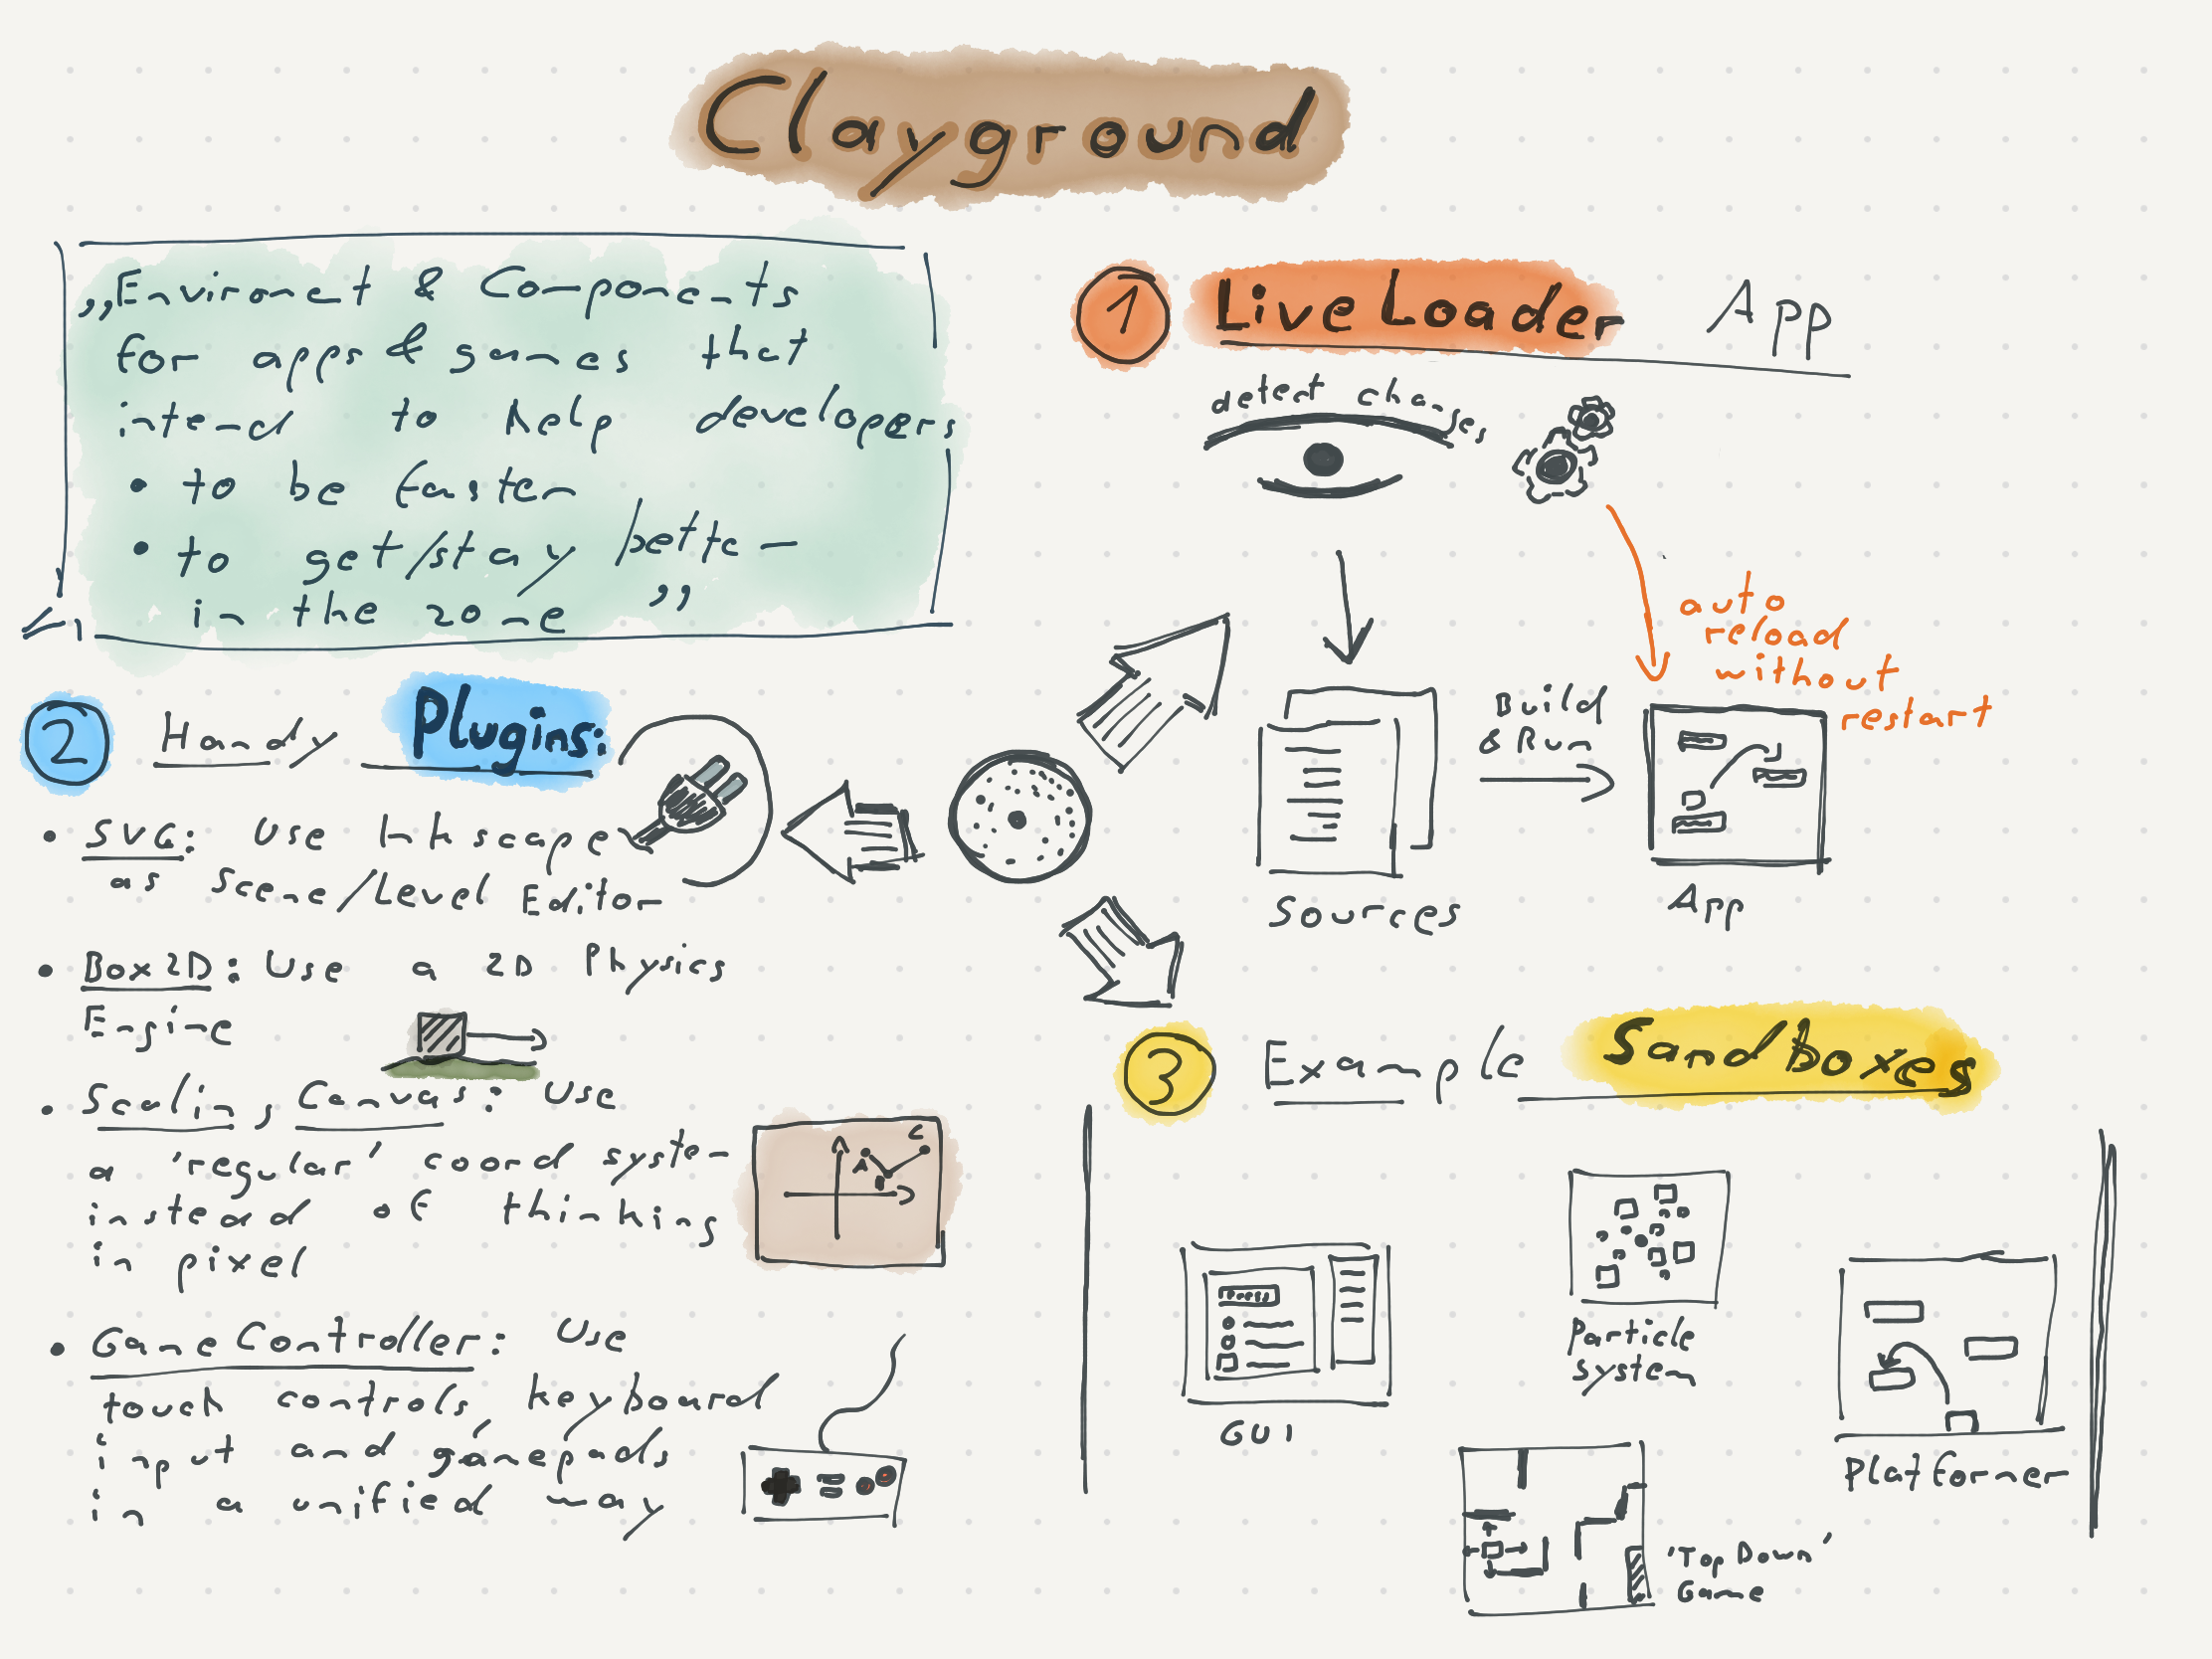 Clayground
„Enviroment & Components
for apps & games that
intend to help developers
• to be faster
• to get/stay better
in the zone ”
1 LiveLoader App
detect changes
auto
reload
without
restart
Build
& Run
Sources
App
2 Handy Plugins:
• SVG: Use Inkscape
as Scene/Level Editor
• Box2D: Use a 2D Physics
Engine
• Scaling Canvas: Use
a 'regular' coord system
instead of thinking
in pixel
A
B
C
• GameController: Use
touch controls, keyboard
input and gamepads
in a unified way
3 Example Sandboxes
GUI
Particle
System
Platformer
'Top Down'
Game